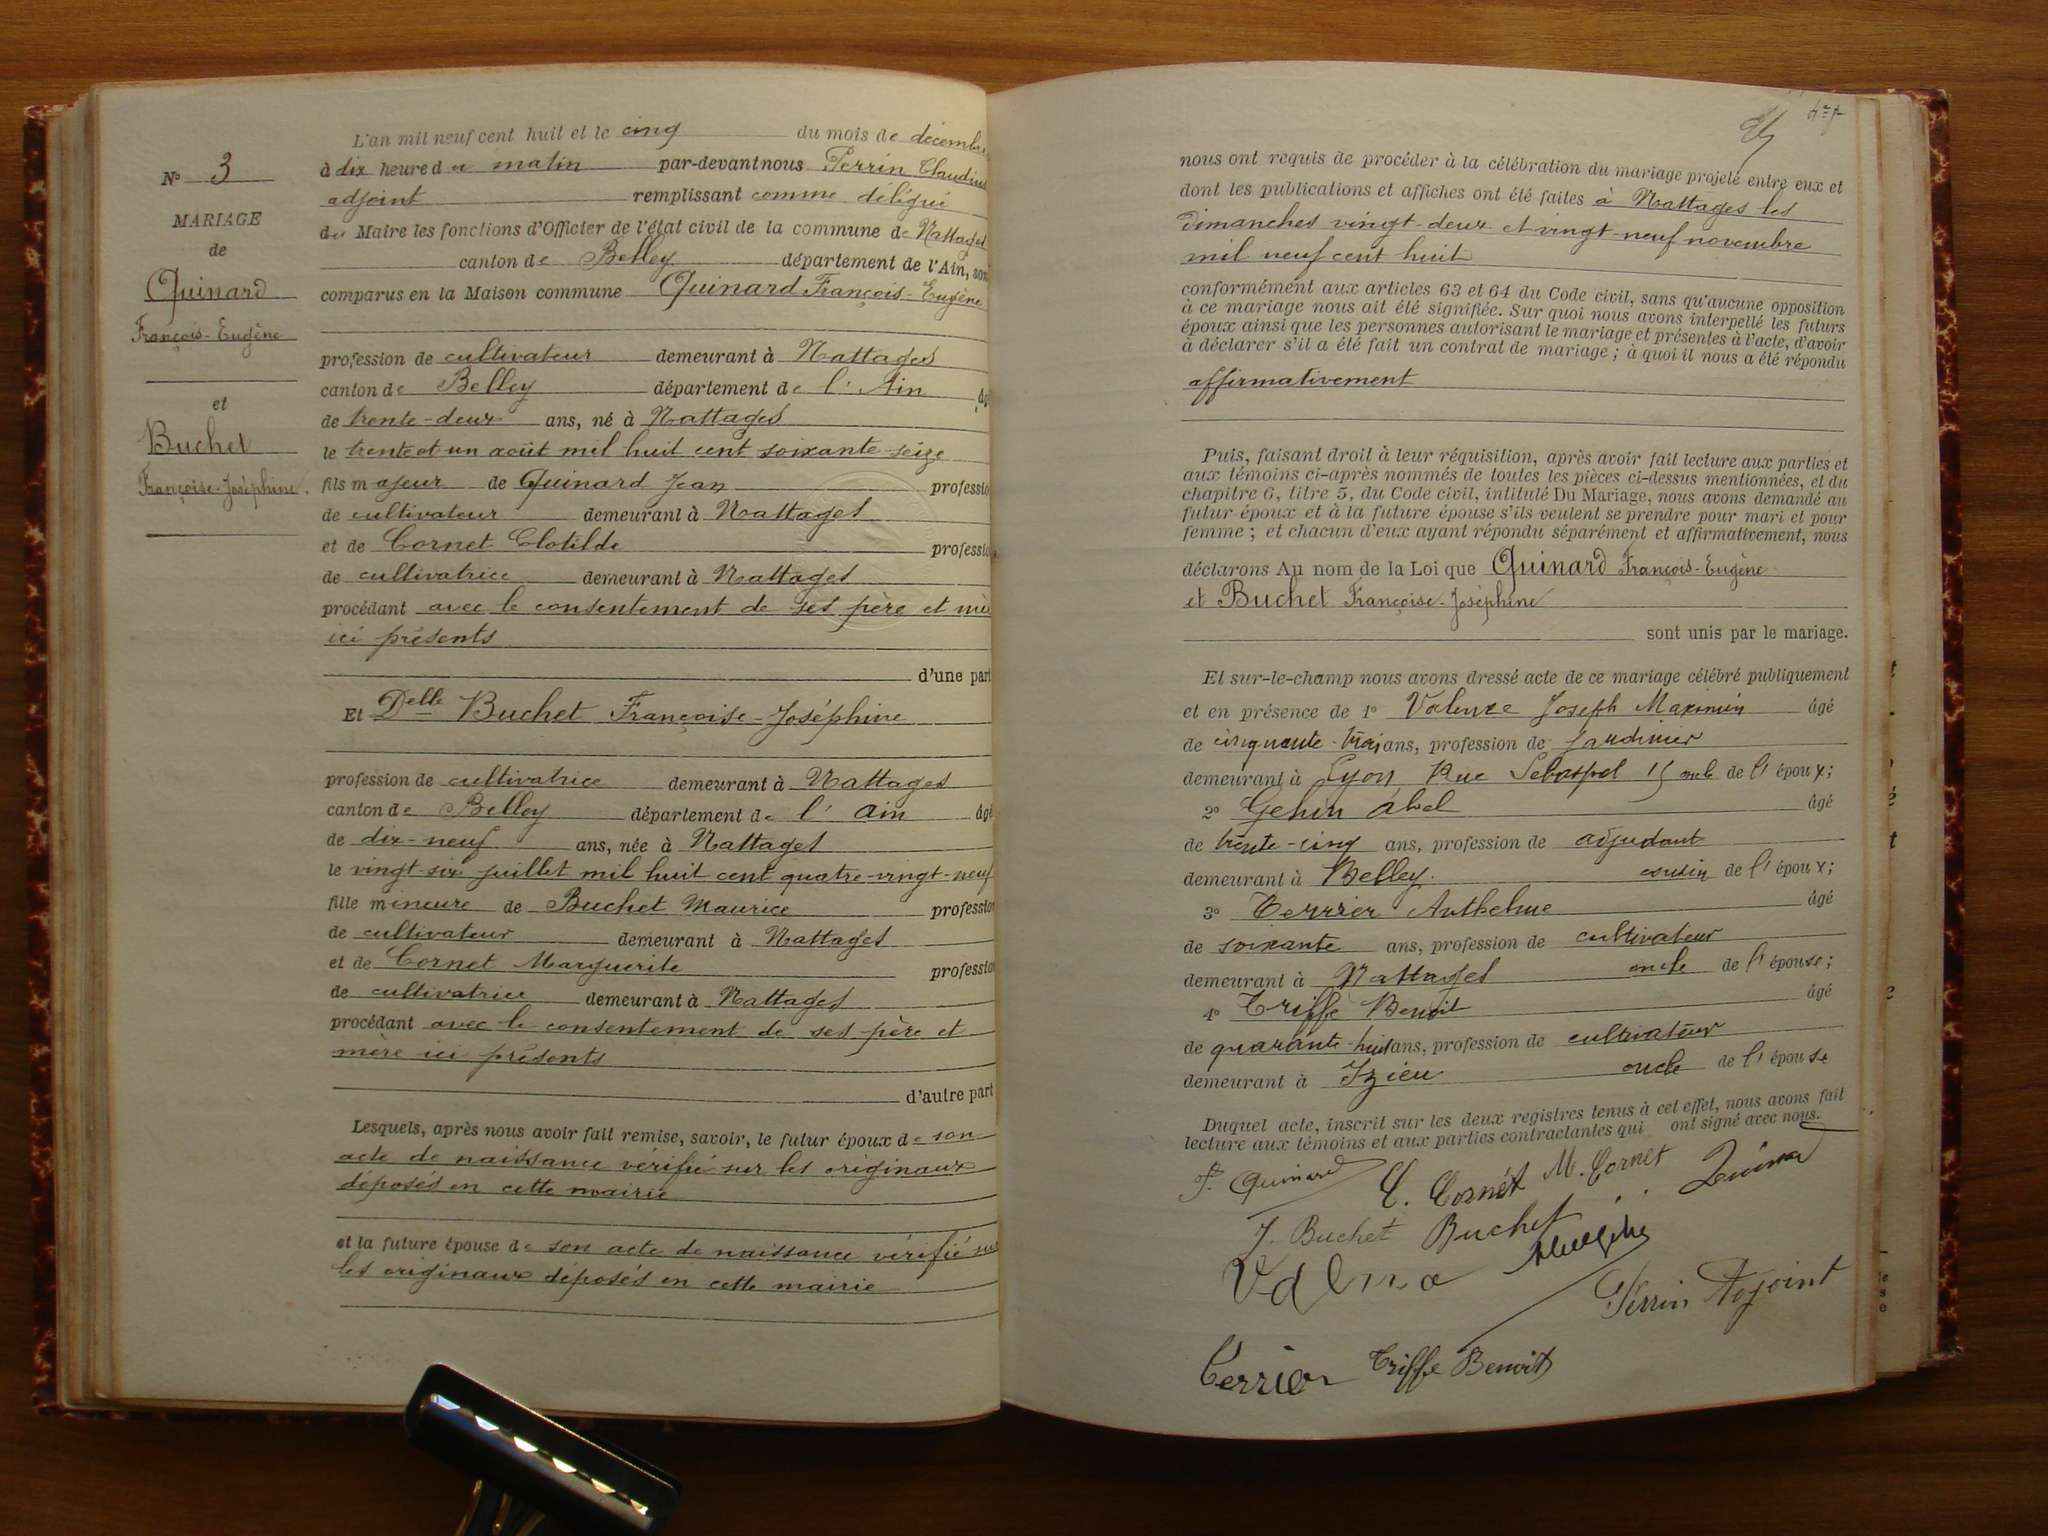 L'an mil neuf cent huit et le cinq du mois de décembre
à dix heure du matin par-devant nous Perrin Claudius
adjoint remplissant comme délégué
du Maire les fonctions d'Officier de l'état civil de la commune de Nattages
canton de Belley département de l'Ain, sont
comparus en la Maison commune Quinard François-Eugène
profession de cultivateur demeurant à Nattages
canton de Belley département de l'Ain âgé
de trente-deux ans, né à Nattages
le trente et un août mil huit cent soixante-seize
fils majeur de Quinard Jean profession
de cultivateur demeurant à Nattages
et de Cornet Clotilde profession
de cultivatrice demeurant à Nattages
procédant avec le consentement de ses père et mère
ici présents
d'une part
Et Delle Buchet Françoise-Joséphine
profession de cultivatrice demeurant à Nattages
canton de Belley département de l'Ain âgé
de dix-neuf ans, née à Nattages
le vingt-six juillet mil huit cent quatre-vingt-neuf
fille mineure de Buchet Maurice profession
de cultivateur demeurant à Nattages
et de Cornet Marguerite profession
de cultivatrice demeurant à Nattages
procédant avec le consentement de ses père et
mère ici présents
d'autre part
Lesquels, après nous avoir fait remise, savoir, le futur époux de son
acte de naissance vérifié sur les originaux
déposés en cette mairie
et la future épouse de son acte de naissance vérifié sur
les originaux déposés en cette mairie
N° 3
MARIAGE
de
Quinard
François-Eugène
et
Buchet
Françoise-Joséphine.
nous ont requis de procéder à la célébration du mariage projeté entre eux et
dont les publications et affiches ont été faites à Nattages les
dimanches vingt-deux et vingt-neuf novembre
mil neuf cent huit
conformément aux articles 63 et 64 du Code civil, sans qu'aucune opposition
à ce mariage nous ait été signifiée. Sur quoi nous avons interpellé les futurs
époux ainsi que les personnes autorisant le mariage et présentes à l'acte, d'avoir
à déclarer s'il a été fait un contrat de mariage ; à quoi il nous a été répondu
affirmativement
Puis, faisant droit à leur réquisition, après avoir fait lecture aux parties et
aux témoins ci-après nommés de toutes les pièces ci-dessus mentionnées, et du
chapitre 6, titre 5, du Code civil, intitulé Du Mariage, nous avons demandé au
futur époux et à la future épouse s'ils veulent se prendre pour mari et pour
femme ; et chacun d'eux ayant répondu séparément et affirmativement, nous
déclarons Au nom de la Loi que Quinard François-Eugène
et Buchet Françoise-Joséphine
sont unis par le mariage.
Et sur-le-champ nous avons dressé acte de ce mariage célébré publiquement
et en présence de 1° Joseph Maximin âgé
de cinquante-trois ans, profession de jardinier
demeurant à Lyon Rue Sebastopol 15 oncle de l'époux;
2° Gehin Abel âgé
de trente-cinq ans, profession de adjudant
demeurant à Belley. cousin de l'époux;
3° Terrier Anthelme âgé
de soixante ans, profession de cultivateur
demeurant à Nattages oncle de l'épouse;
4° Triffe Benoit âgé
de quarante-huit ans, profession de cultivateur
demeurant à Izieu oncle de l'épouse
Duquel acte, inscrit sur les deux registres tenus à cet effet, nous avons fait
lecture aux témoins et aux parties contractantes qui ont signé avec nous.
F. Quinard C. Cornet M. Cornet
J. Buchet Buchet
Perrin Adjoint
Terrier Triffe Benoit